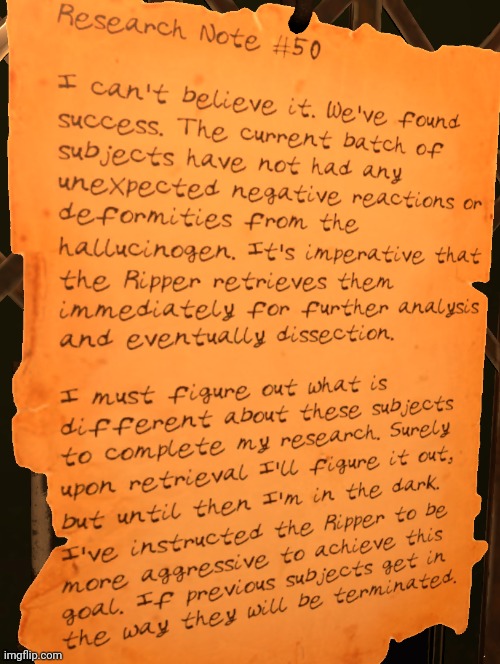 Research Note #50
I can't believe it. We've found
success. The current batch of
subjects have not had any
unexpected negative reactions or
deformities from the
hallucinogen. It's imperative that
the Ripper retrieves them
immediately for further analysis
and eventually dissection.
I must figure out what is
different about these subjects
to complete my research. Surely
upon retrieval I'll figure it out,
but until then I'm in the dark.
I've instructed the Ripper to be
more aggressive to achieve this
goal. If previous subjects get in
the way they will be terminated.
imgflip.com